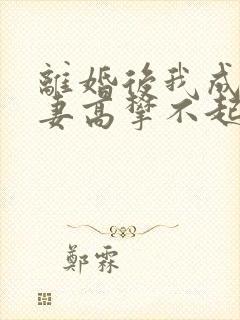 離婚後我成
妻高攀不起
鄭霖